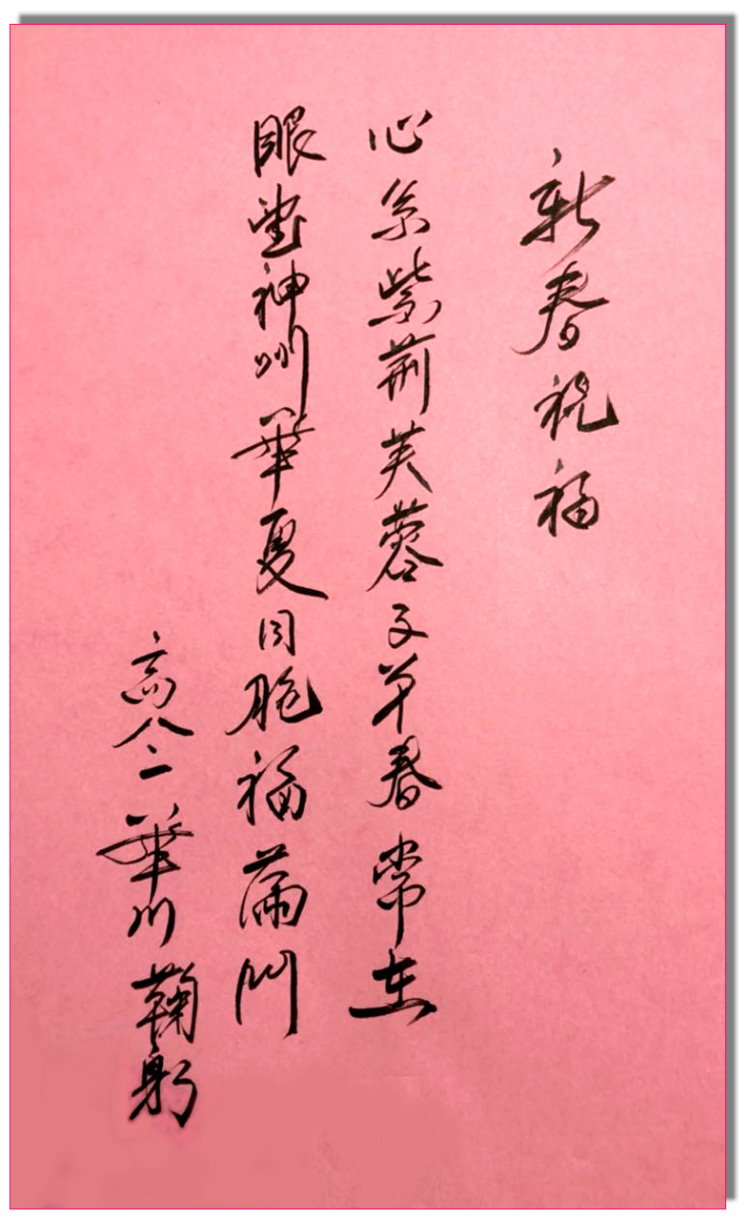 新春祝福
心系紫荆芙蓉子弟春常在
眼望神州華夏同胞福满門
高八二華川鞠躬